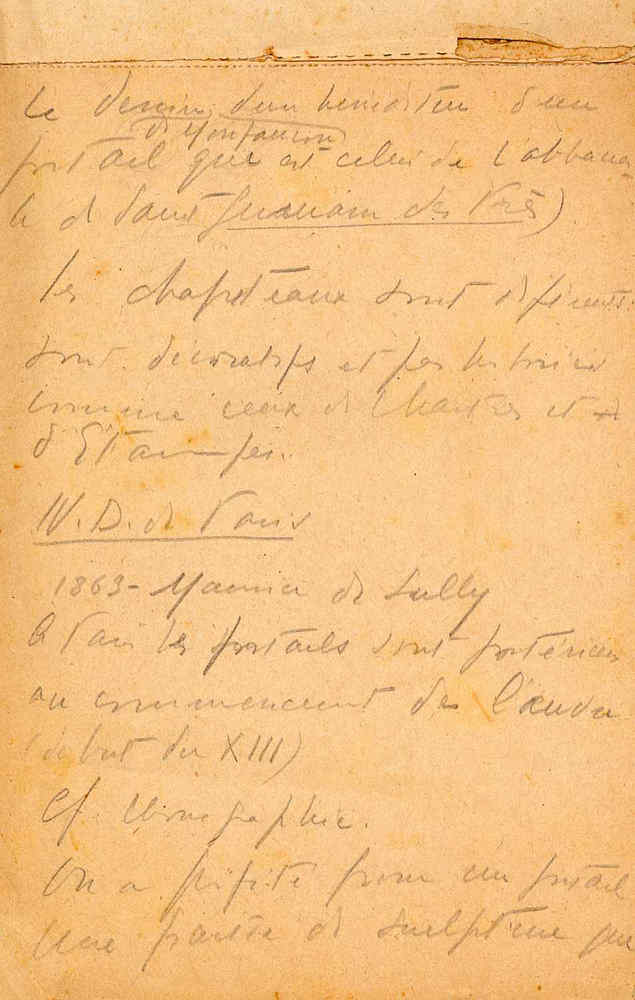 le dessin d'un bénédictin d'un
de Monfaucon
portail qui est celui de l'abbaye
de Saint Germain des Près)
les chapiteaux sont différents
sont décoratifs et pas historiés
comme ceux de Chartres et
d'Etampes.
N. D. de Paris
1863 - Maurice de Sully
A Paris les portails sont postérieurs
au commencement de l'
(début du XIII)
Cf. iconographie.
On a profité pour un portail
une partie de sculpture que